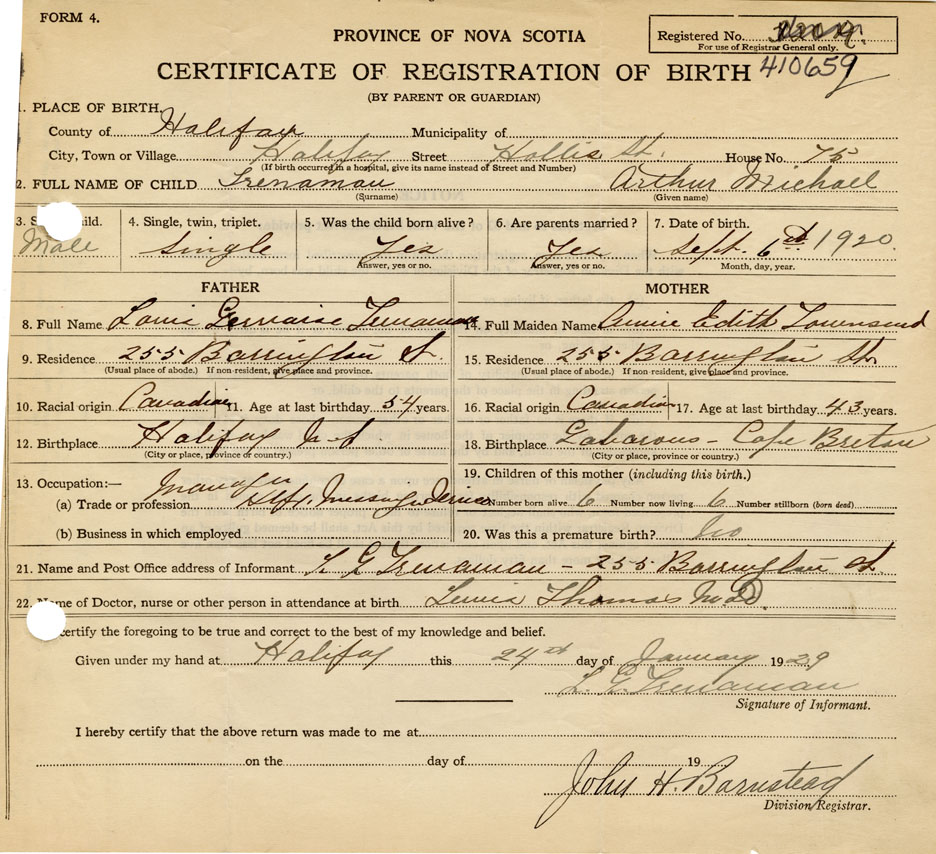 FORM 4.
PROVINCE OF NOVA SCOTIA
Registered No.
For use of Registrar General only.
CERTIFICATE OF REGISTRATION OF BIRTH 410659
(BY PARENT OR GUARDIAN)
1. PLACE OF BIRTH,
County of Halifax Municipality of
City, Town or Village Halifax Street Hollis St. House No. 75
(If birth occurred in a hospital, give its name instead of Street and Number)
2. FULL NAME OF CHILD Trenaman Arthur Michael
(Surname) (Given name)
3. S child. 4. Single, twin, triplet. 5. Was the child born alive? 6. Are parents married? 7. Date of birth.
Male Single Yes Yes Sept. 6th 1920
Answer, yes or no. Answer, yes or no. Month, day, year.
FATHER MOTHER
8. Full Name Louis Gervaise Trenaman 14. Full Maiden Name Annie Edith Townsend
9. Residence 255 Barrington St. 15. Residence 255 Barrington St.
(Usual place of abode.) If non-resident, give place and province. (Usual place of abode.) If non-resident, give place and province.
10. Racial origin Canadian 11. Age at last birthday 54 years. 16. Racial origin Canadian 17. Age at last birthday 43 years.
12. Birthplace Halifax N.S. 18. Birthplace Gabarous - Cape Breton
(City or place, province or country.) (City or place, province or country.)
13. Occupation:— 19. Children of this mother (including this birth.)
(a) Trade or profession Manager Messenger Service Number born alive 6 Number now living 6 Number stillborn (born dead)
(b) Business in which employed 20. Was this a premature birth? No
21. Name and Post Office address of Informant L G Trenaman - 255 Barrington St.
22. Name of Doctor, nurse or other person in attendance at birth Lewis Thomas M.D.
certify the foregoing to be true and correct to the best of my knowledge and belief.
Given under my hand at Halifax this 24th day of January 1929
L. G. Trenaman
Signature of Informant.
I hereby certify that the above return was made to me at
on the day of 19
John H. Barnstead
Division Registrar.